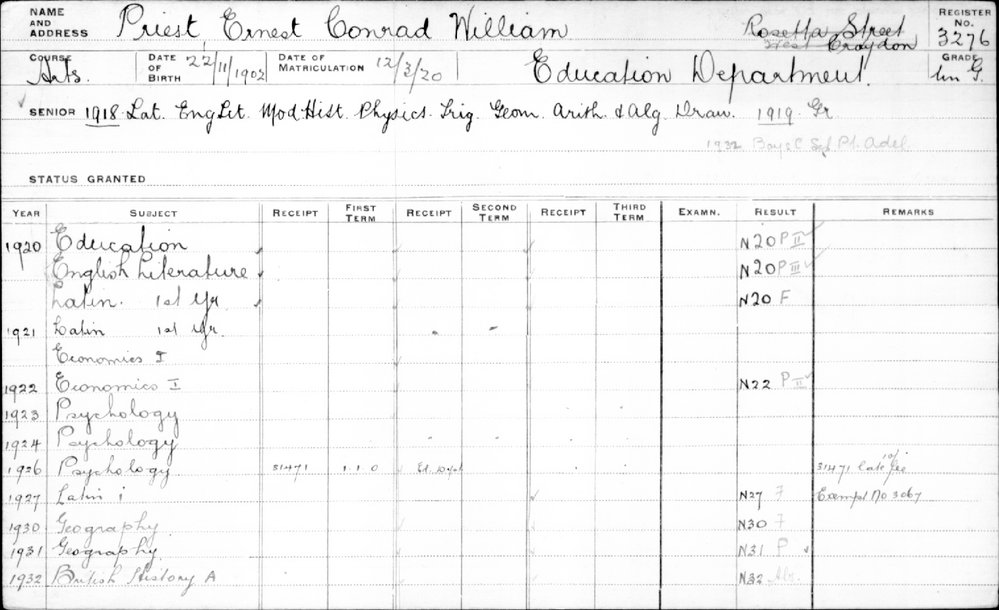 NAME AND ADDRESS Priest, Ernest Conrad William Rosetta Street West Croydon REGISTER NO. 3276
COURSE Arts. DATE OF BIRTH 22/11/1902 DATE OF MATRICULATION 12/3/20 Education Department GRADE G.
SENIOR 1918. Lat. Eng Lit. Mod Hist. Physics. Trig. Geom. Arith. & Alg. Draw. 1919. Gr
1932 Boys Pt. Adel
STATUS GRANTED
YEAR SUBJECT RECEIPT FIRST TERM RECEIPT SECOND TERM RECEIPT THIRD TERM EXAMN. RESULT REMARKS
1920 Education N20 P II
English Literature N20 P III
Latin. 1st Yr N20 F
1921 Latin 1st Yr.
Economics I
1922 Economics I N22 P II
1923 Psychology
1924 Psychology
1926 Psychology 31471 1.1.0 Ed. Dept 31471 late fee 10/
1927 Latin i N27 F Exempt No 3067
1930 Geography N30 F
1931 Geography N31 P
1932 British History A N32 Abs.